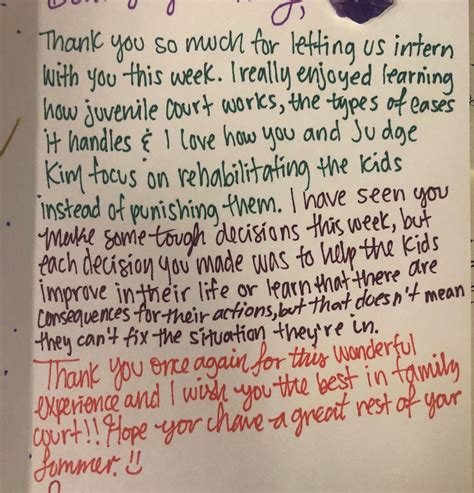 Thank you so much for letting us intern
with you this week. I really enjoyed learning
how juvenile court works, the types of cases
it handles & I love how you and Judge
Kim focus on rehabilitating the kids
instead of punishing them. I have seen you
make some tough decisions this week, but
each decision you made was to help the kids
improve in their life or learn that there are
consequences for their actions, but that doesn't mean
they can't fix the situation they're in.
Thank you once again for this wonderful
experience and I wish you the best in family
court!! Hope you have a great rest of your
summer. !!